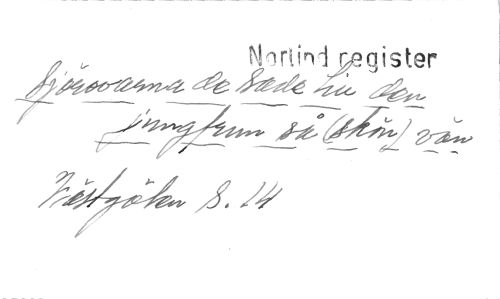 Norlind register
Sjörövarna de sade till den
jungfrun så (skön) vän
Västgöten S. 14